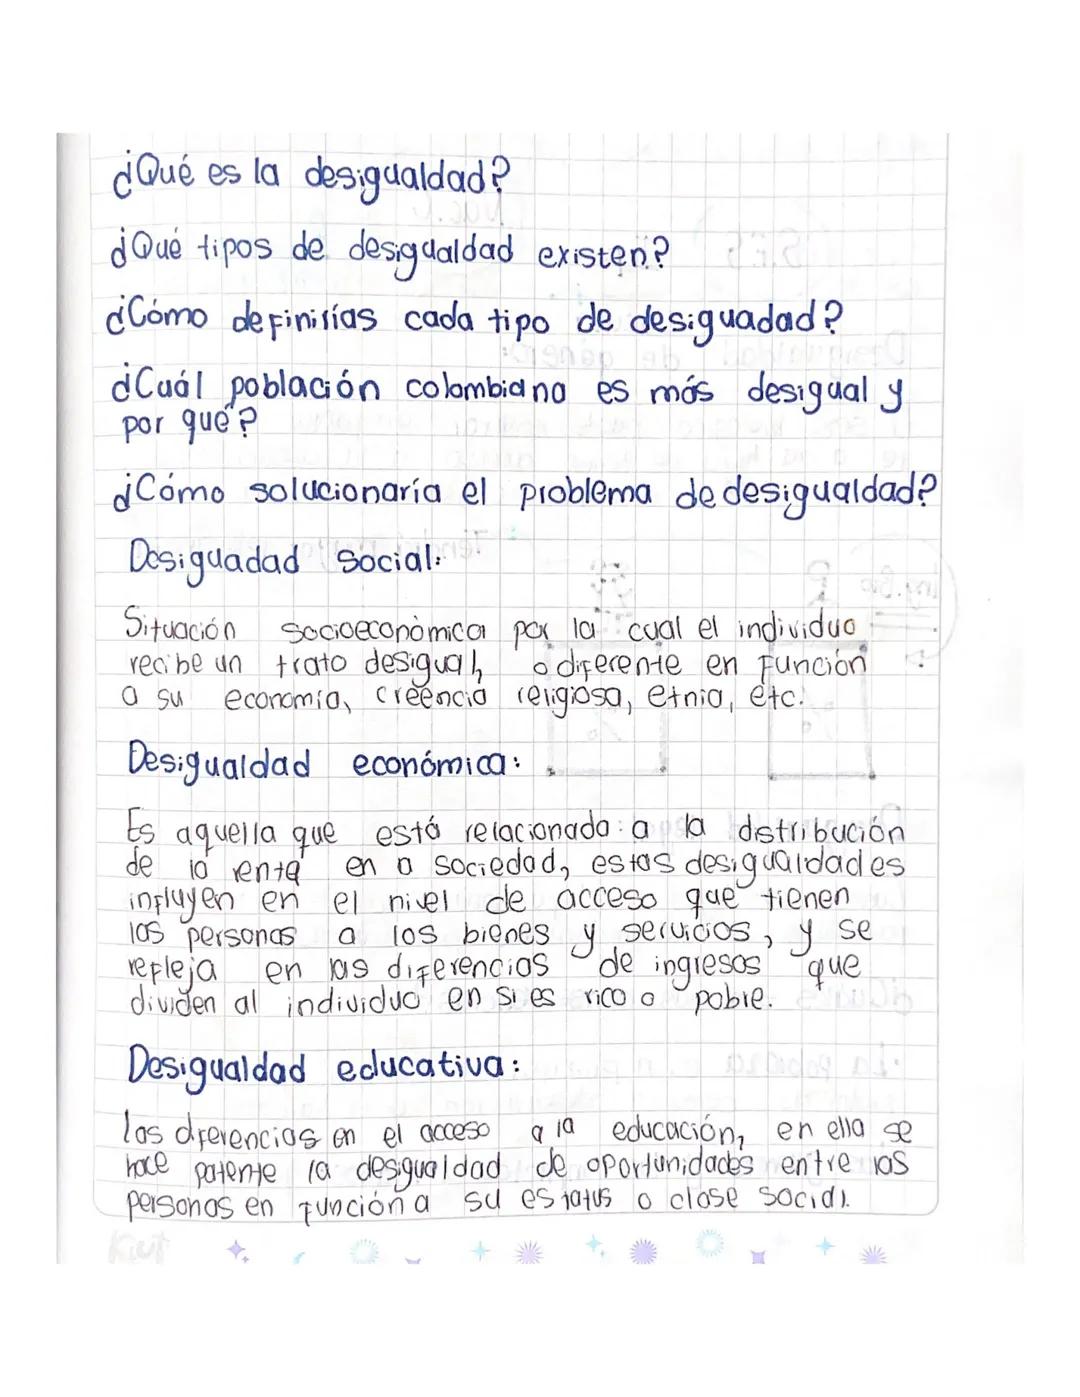 ¿Qué es la desigualdad?
¿Qué tipos de desigualdad existen?
¿Cómo definirías cada tipo de desiguadad?
¿Cuál población colombiana es más desigual y
por qué?
¿Cómo solucionaría el problema de desigualdad?
Desiguadad social:
Situación socioeconómica por la cual el individuo
recibe un trato desigual, o diferente en función
a su economía, creencia religiosa, etnia, etc.
Desigualdad económica:
Es aquella que está relacionada a la distribución
de la renta en a sociedad, estas desigualdades
influyen en el nivel de acceso que tienen
las personas a los bienes y servicios, y se
refleja en las diferencias de ingresos que
dividen al individuo en si es rico o pobre.
Desigualdad educativa:
las diferencias en el acceso a la educación, en ella se
hace patente la desigualdad de oportunidades entre las
personas en función a su estatus o clase social.
Kiut